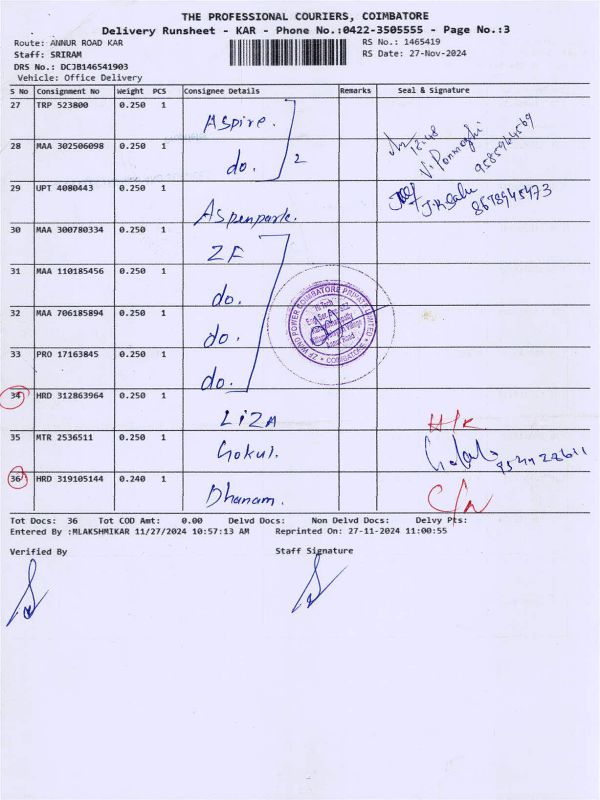 THE PROFESSIONAL COURIERS, COIMBATORE
Delivery Runsheet - KAR - Phone No.:0422-3505555 - Page No.:3
Route: ANNUR ROAD KAR RS No.: 1465419
Staff: SRIRAM RS Date: 27-Nov-2024
DRS No.: DCJB146541903
Vehicle: Office Delivery
S No Consignment No Weight PCS Consignee Details Remarks Seal & Signature
27 TRP 523800 0.250 1 Aspire.
28 MAA 302506098 0.250 1 do. 2 12:48
V. Ponmozhi
9585964569
29 UPT 4080443 0.250 1 Aspenpark. 8678945473
30 MAA 300780334 0.250 1 ZF
31 MAA 110185456 0.250 1 do.
32 MAA 706185894 0.250 1 do.
33 PRO 17163845 0.250 1 do.
ZF WIND POWER COIMBATORE PRIVATE LIMITED
* COIMBATORE *
34 HRD 312863964 0.250 1 LIZA
35 MTR 2536511 0.250 1 Gokul.
36 HRD 319105144 0.240 1 Dhanam.
Tot Docs: 36 Tot COD Amt: 0.00 Delvd Docs: Non Delvd Docs: Delvy Pts:
Entered By :MLAKSHMIKAR 11/27/2024 10:57:13 AM Reprinted On: 27-11-2024 11:00:55
Verified By Staff Signature